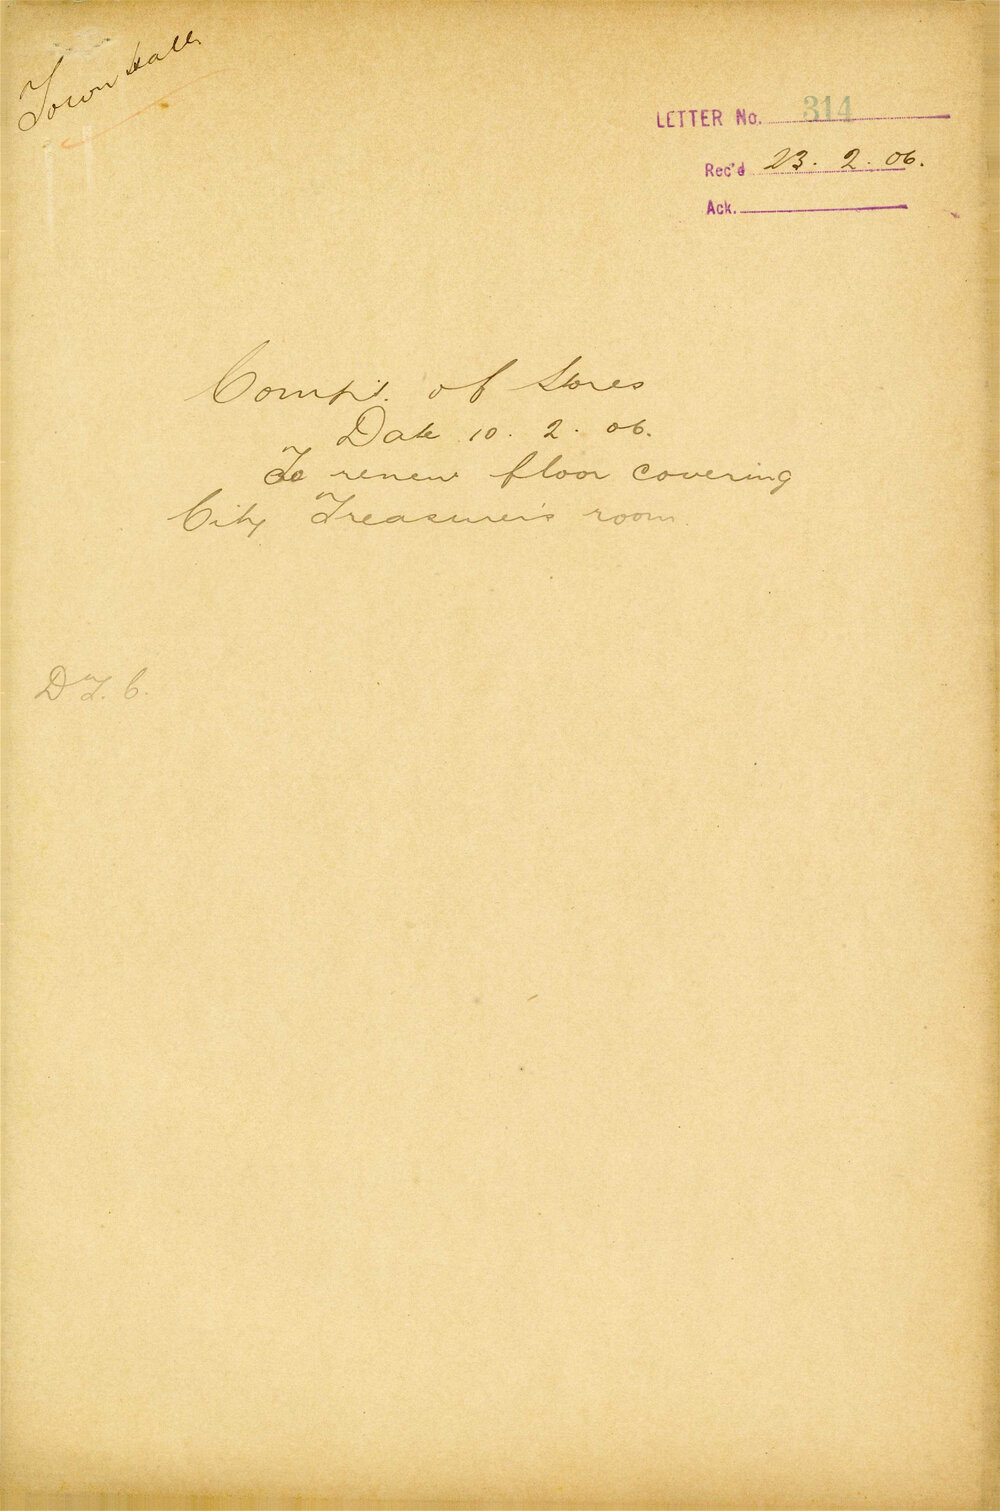 Town Hall
LETTER No. 314
Rec'd 23. 2. 06.
Ack.
Compt. of Stores
Date 10. 2. 06.
To renew floor covering
City Treasurer's room
D T. C.